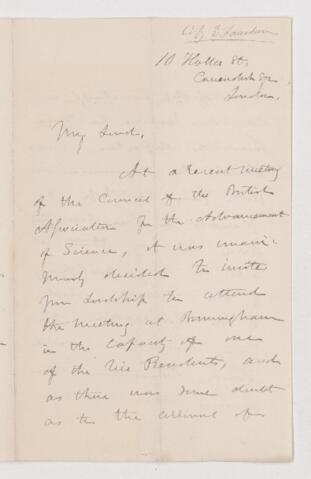 10 Holles St,
Cavendish Sqr
London.
My Lord,
At a recent meeting
of the Council of the British
Association for the Advancement
of Science, it was unani-
mously decided to invite
your Lordship to attend
the meeting at Birmingham
in the capacity of one
of the Vice Presidents, and
as there was some doubt
as to the arrival of